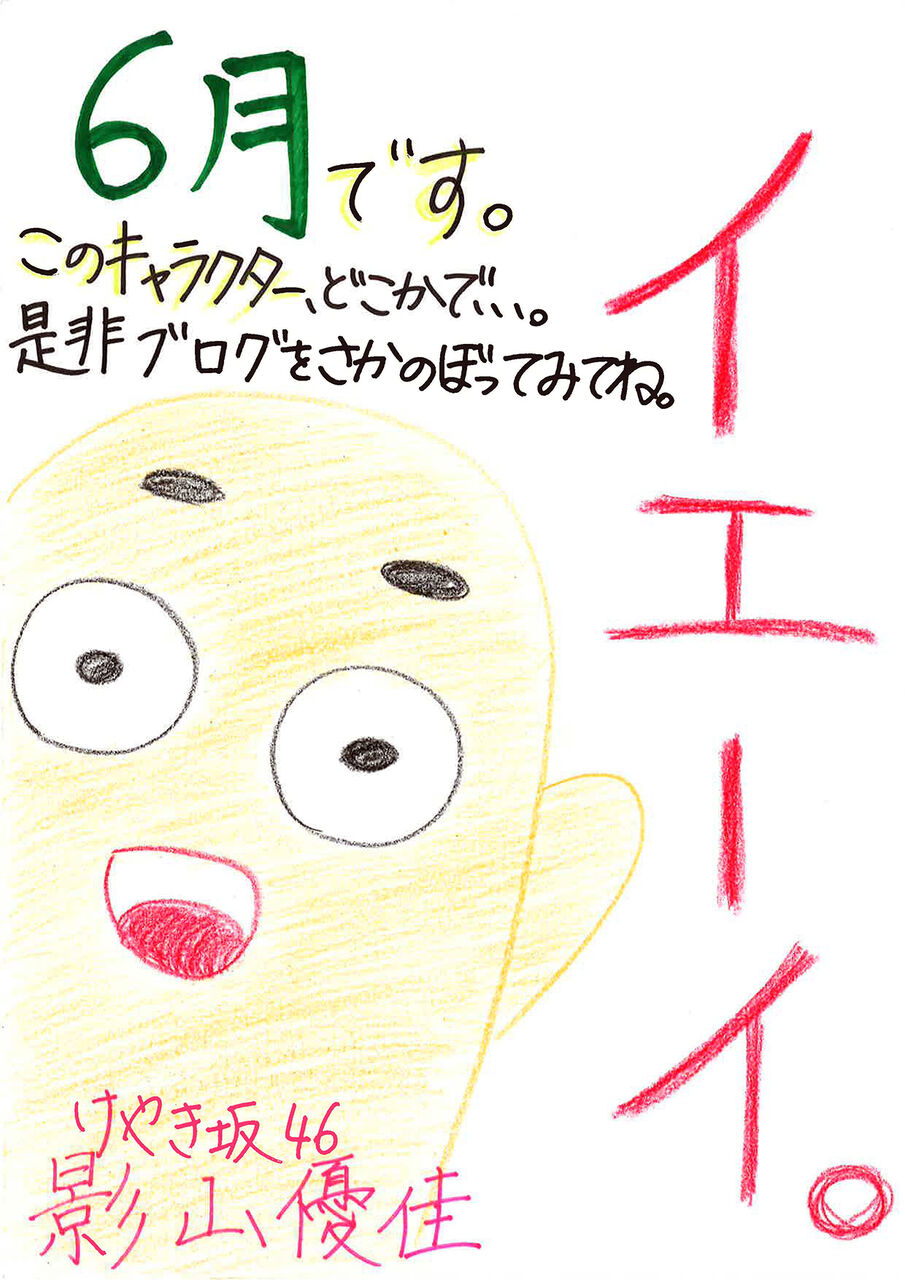 6月です。
このキャラクター、どこかで、、、。
是非ブログをさかのぼってみてね。
イエーイ。
けやき坂46
影山優佳